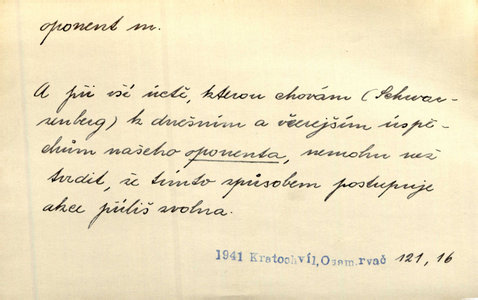 oponent m.
A při vší úctě, kterou chovám (Schwar-
zenberg) k dnešním a včerejším úspě-
chům našeho oponenta, nemohu než
tvrdit, že tímto způsobem postupuje
akce příliš zvolna.
1941 Kratochvíl, Osam.rváč 121, 16